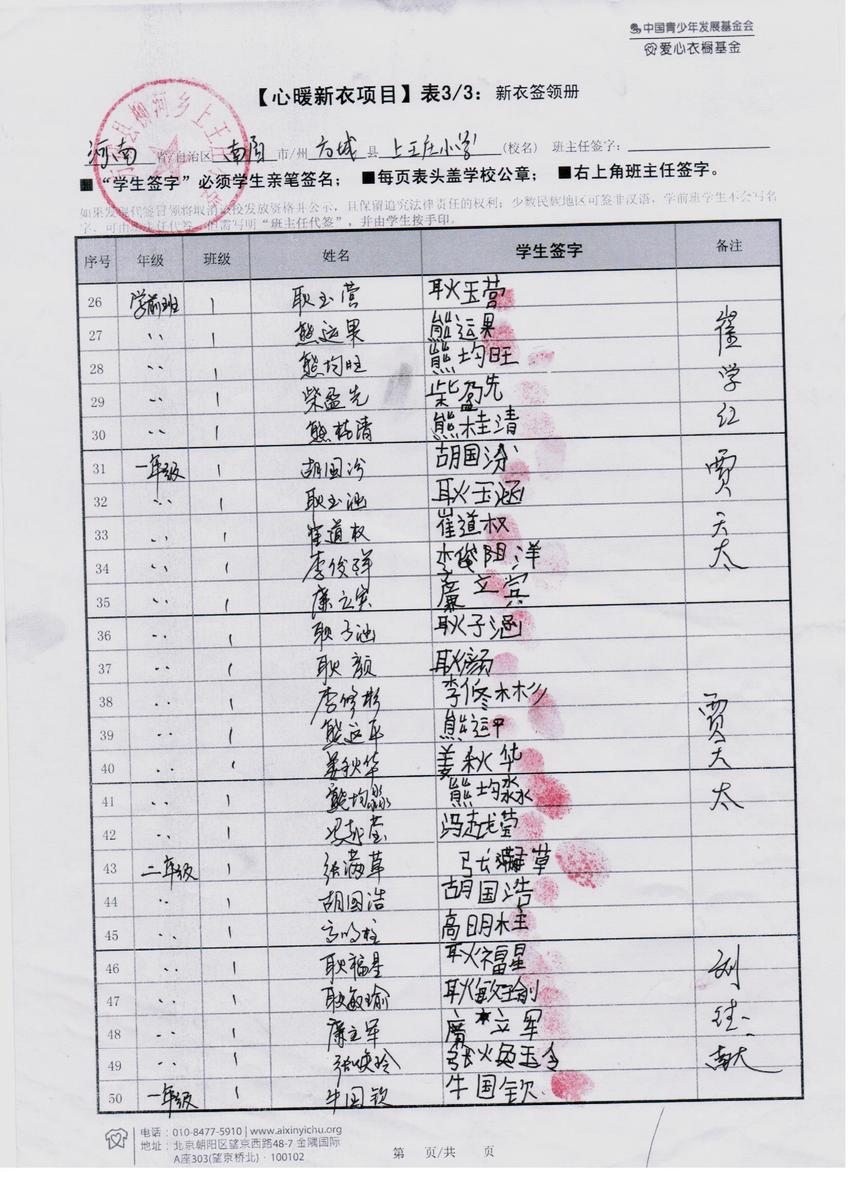 中国青少年发展基金会
爱心衣橱基金
【心暖新衣项目】表3/3：新衣签领册
河南 省/自治区 南阳 市/州 方城 县 上王庄小学 (校名) 班主任签字：
■“学生签字”必须学生亲笔签名； ■每页表头盖学校公章； ■右上角班主任签字。
如果发现代签冒领将取消该校发放资格并公示，且保留追究法律责任的权利；少数民族地区可签非汉语，学前班学生不会写名
字，可由班主任代签，但需写明“班主任代签”，并由学生按手印。
序号 年级 班级 姓名 学生签字 备注
26 学前班 1 耿玉营 耿玉营
27 〃 1 熊运果 熊运果 崔
28 〃 1 熊均旺 熊均旺
29 〃 1 柴盈先 柴盈先 学
30 〃 1 熊桂清 熊桂清 红
31 一年级 1 胡国汾 胡国汾 贾
32 〃 1 耿玉涵 耿玉涵
33 〃 1 崔道权 崔道权 天
34 〃 1 李俊洋 太
35 〃 1 廉立宾 廉立宾
36 〃 1 耿子涵 耿子涵
37 〃 1 耿颜 耿颜
38 〃 1 李修彬 李修彬 贾
39 〃 1 熊运平 熊运平
40 〃 1 姜秋华 姜秋华 天
41 〃 1 熊均淼 熊均淼 太
42 〃 1 冯越莹 冯越莹
43 二年级 1 张满草 张满草
44 〃 1 胡国浩 胡国浩
45 〃 1 高明柱 高明柱
46 〃 1 耿福星 耿福星
47 〃 1 耿敏瑜 耿敏瑜
48 〃 1 廉立军 廉立军
49 〃 1 张焕玲 张焕玲
50 一年级 1 牛国钦 牛国钦
电话：010-8477-5910 | www.aixinyichu.org
地址：北京朝阳区望京西路48-7 金隅国际
A座303(望京桥北) · 100102
第 页/共 页